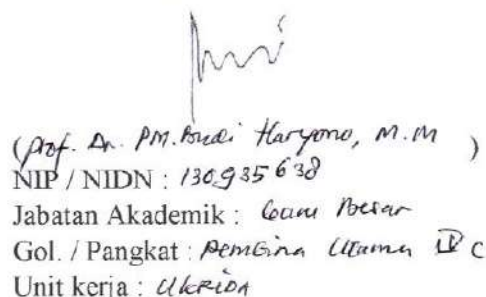 (Prof. Dr. PM. Budi Haryono, M.M )
NIP / NIDN : 130.935638
Jabatan Akademik : Guru Besar
Gol. / Pangkat : Pembina Utama IV C
Unit kerja : UKRIDA